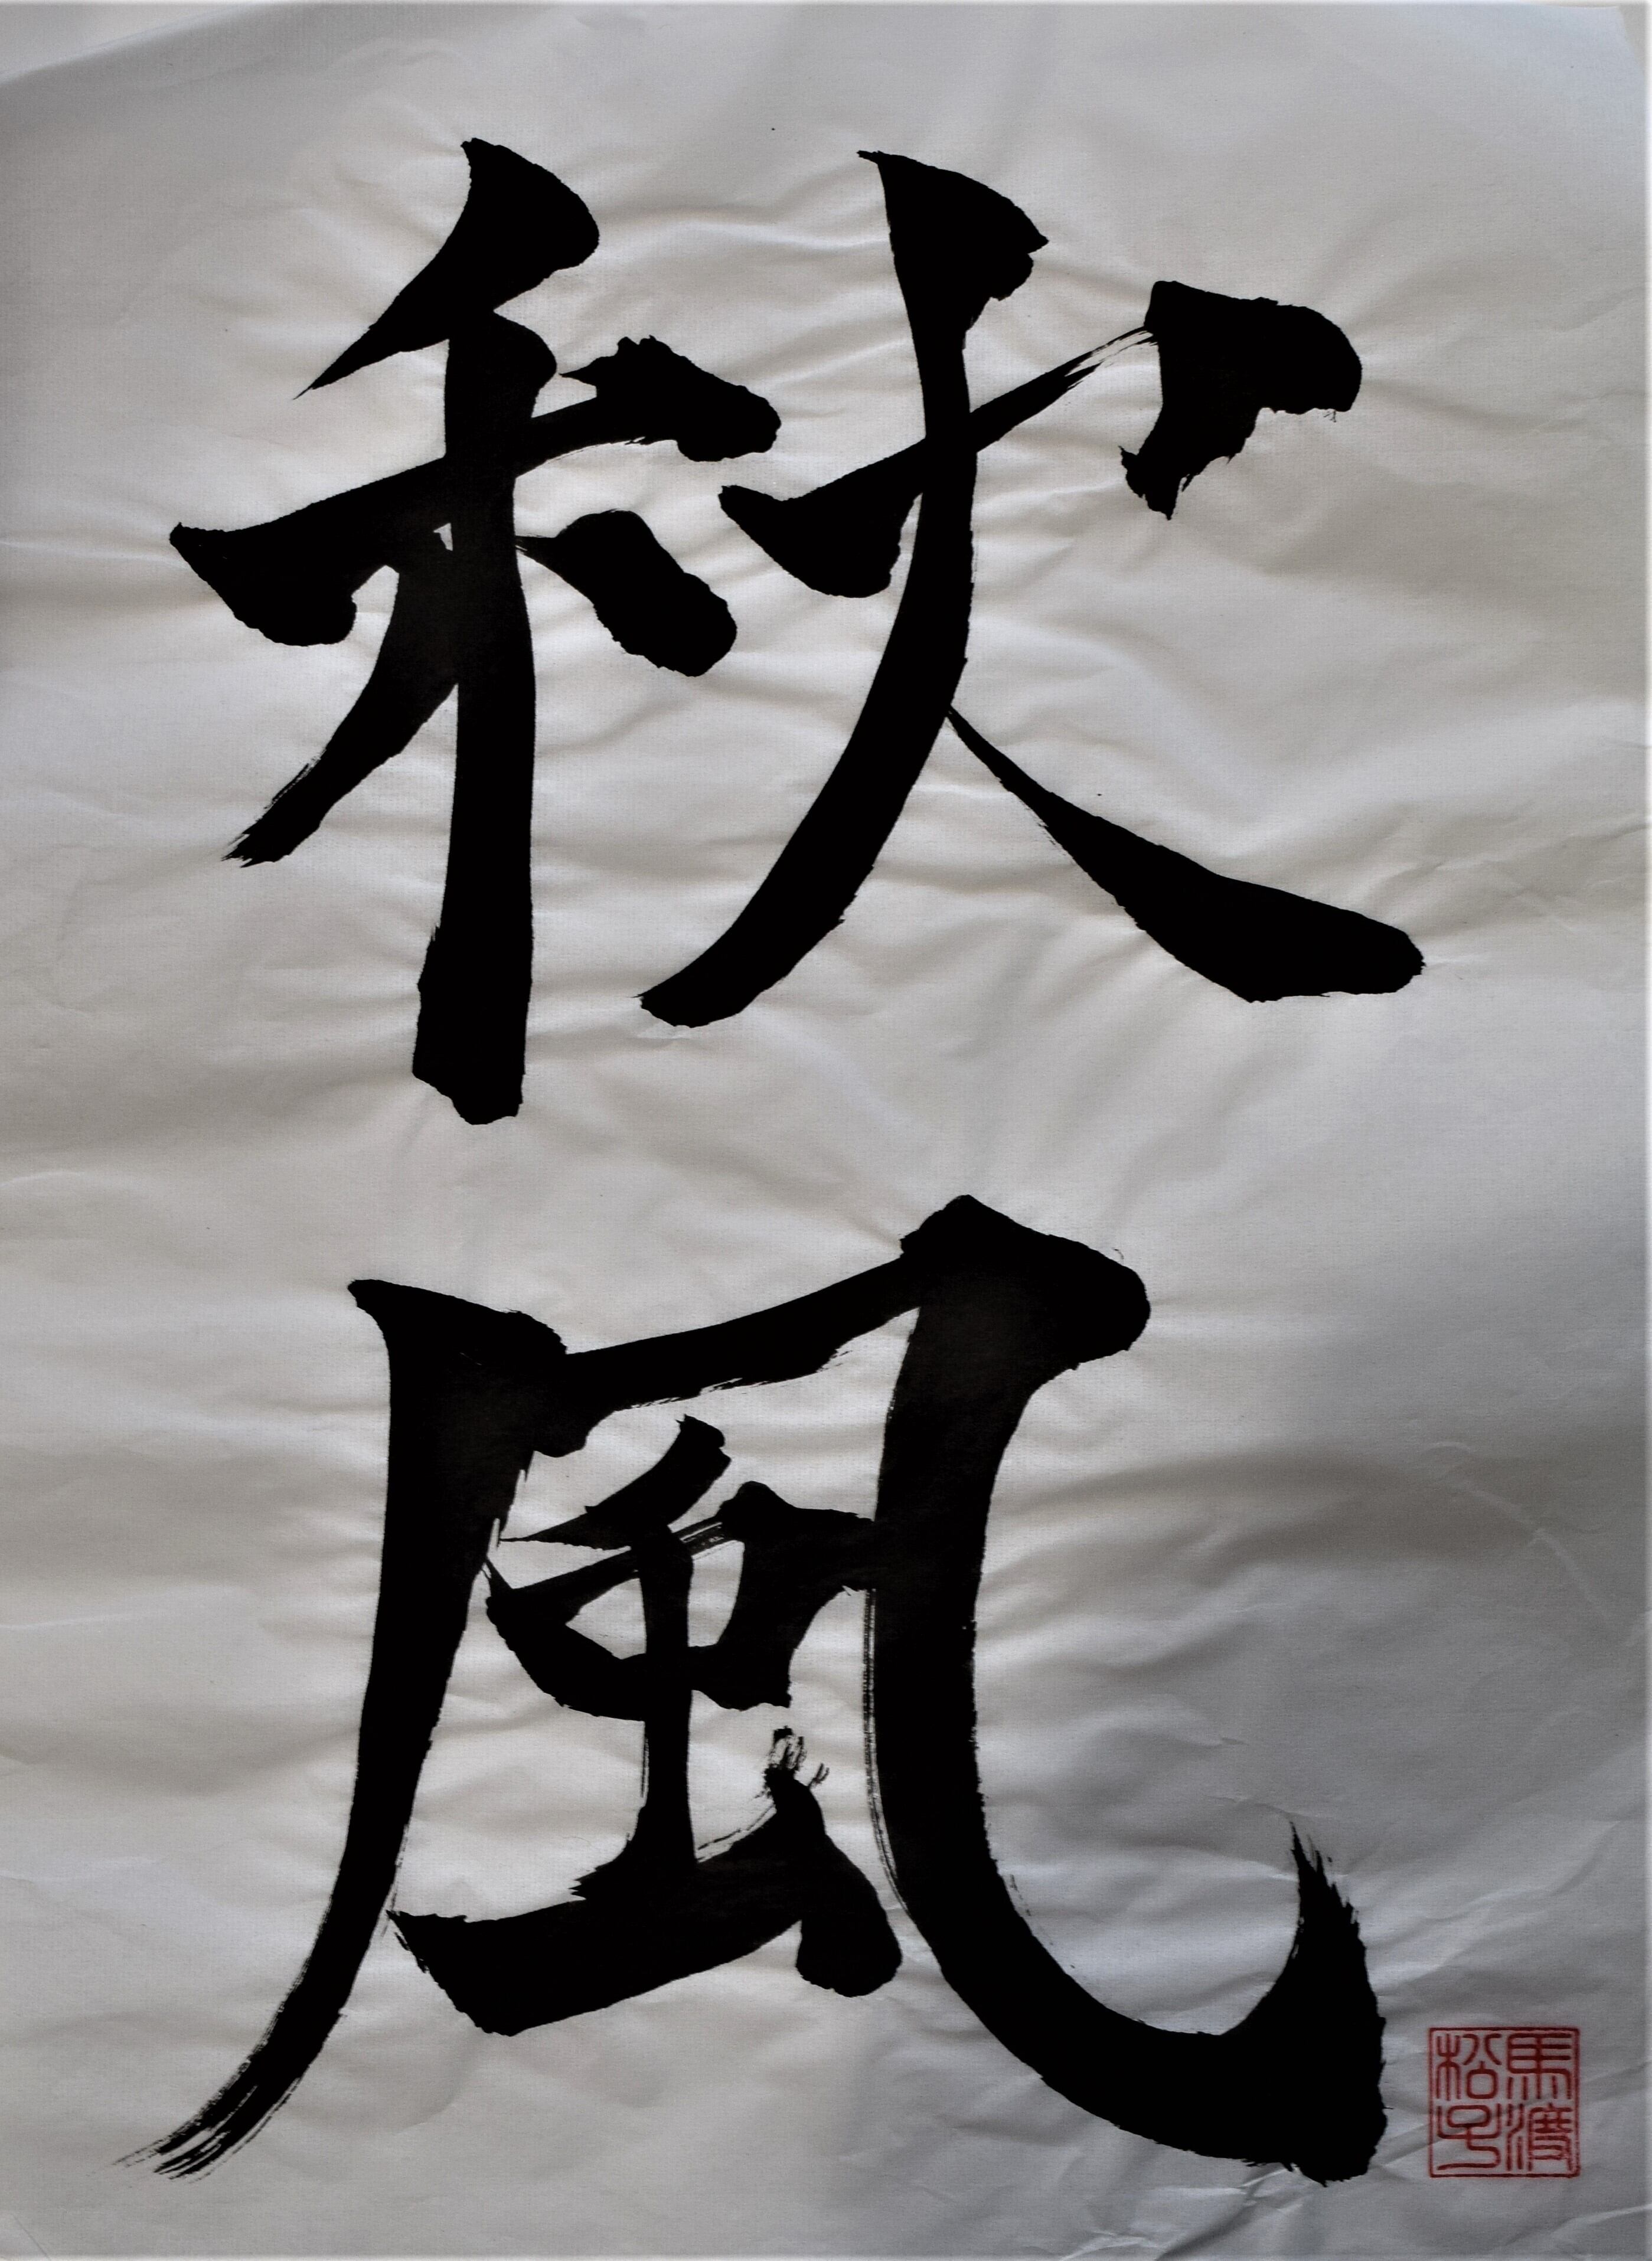 秋風
馬渡
松子